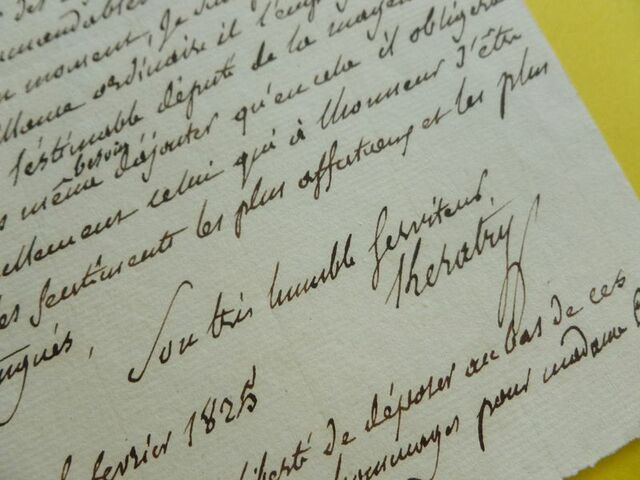 des
mmandable
n moment, je
Mame ordinaire il l'
l'estimable député de la mayen
besoin
s même d'ajouter qu'en cela il obligera
ellement celui qui à l'honneur d'être
les sentiments les plus affectueux et les plus
ingués,
Son très humble serviteur,
Kératry
février 1825
liberté de déposer au bas de ces
hommages pour madame